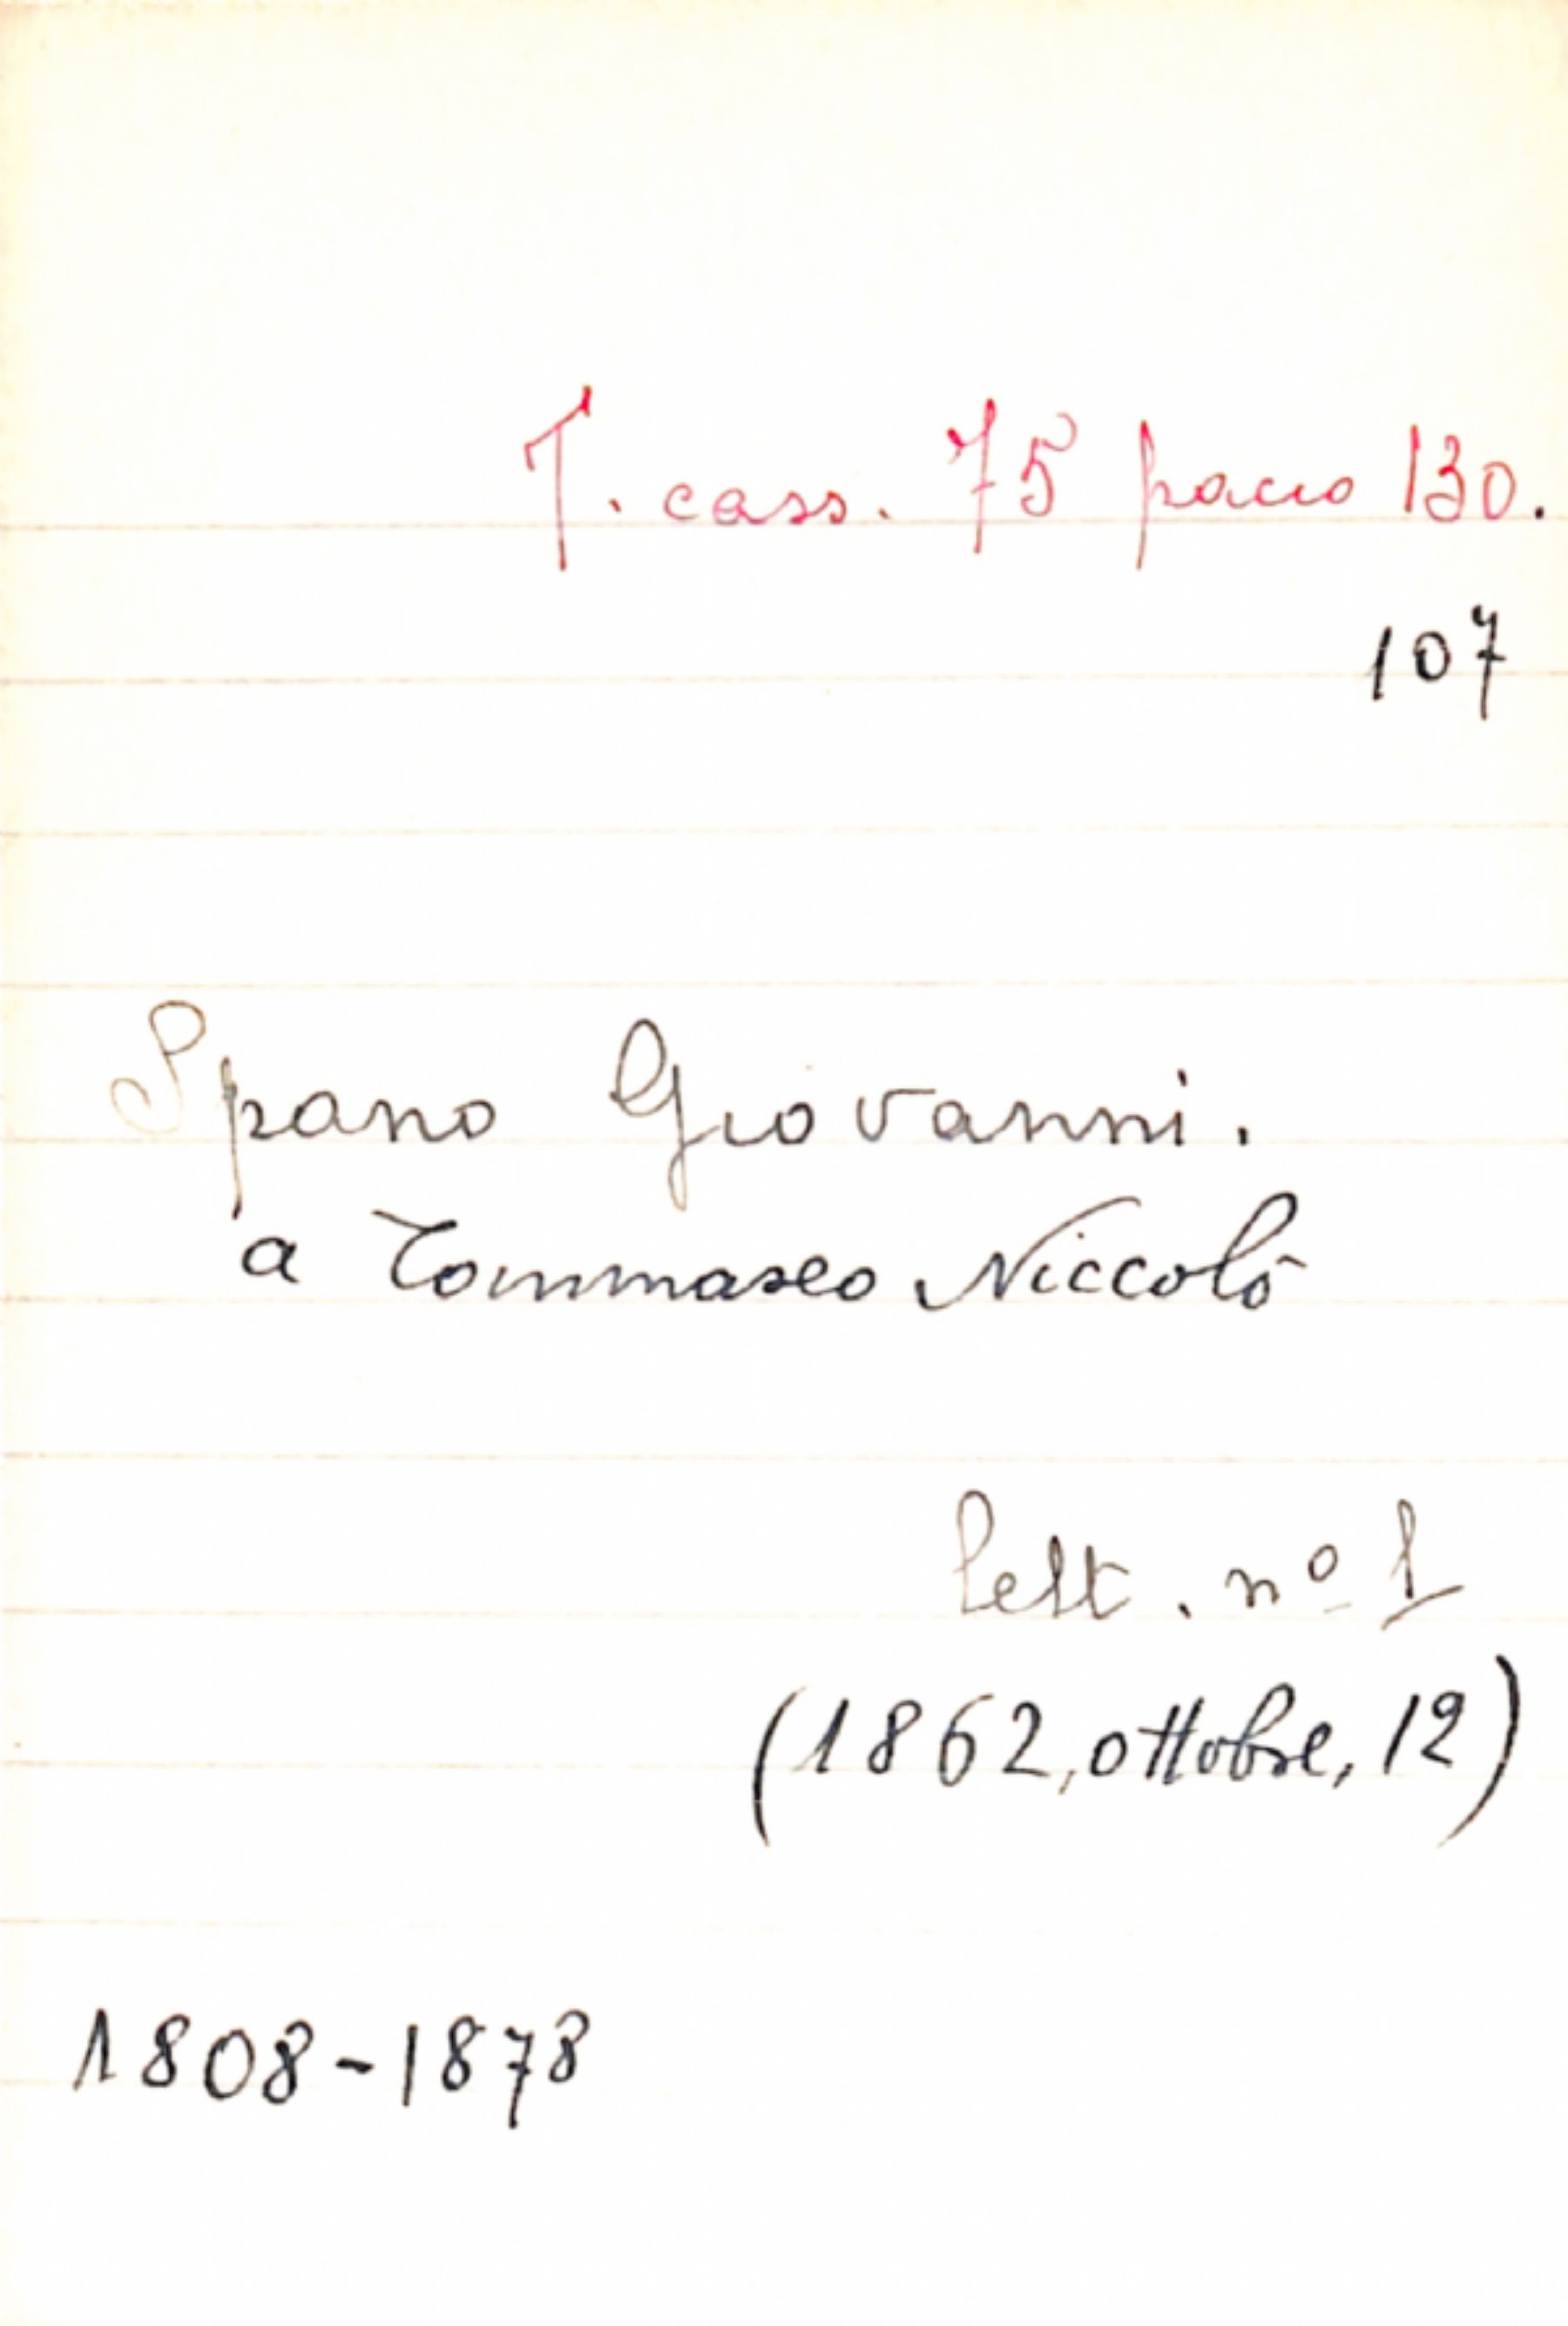 T. cass. 75 pacco 130.
107
Spano Giovanni.
a Tommaseo Niccolò
lett. nº 1
(1862, ottobre, 12)
1808-1878